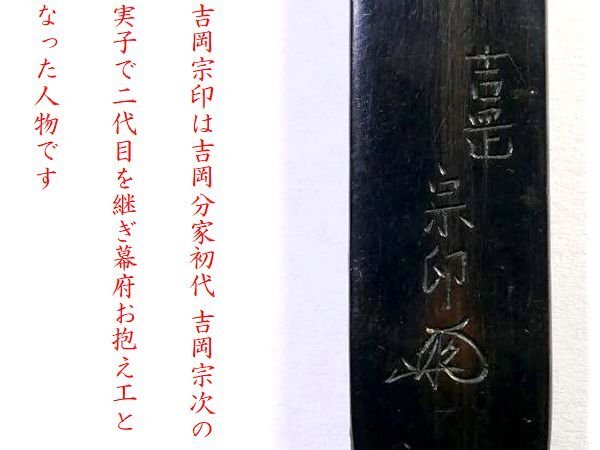 吉岡宗印は吉岡分家初代 吉岡宗次の
実子で二代目を継ぎ幕府お抱え工と
なった人物です
吉岡
宗印